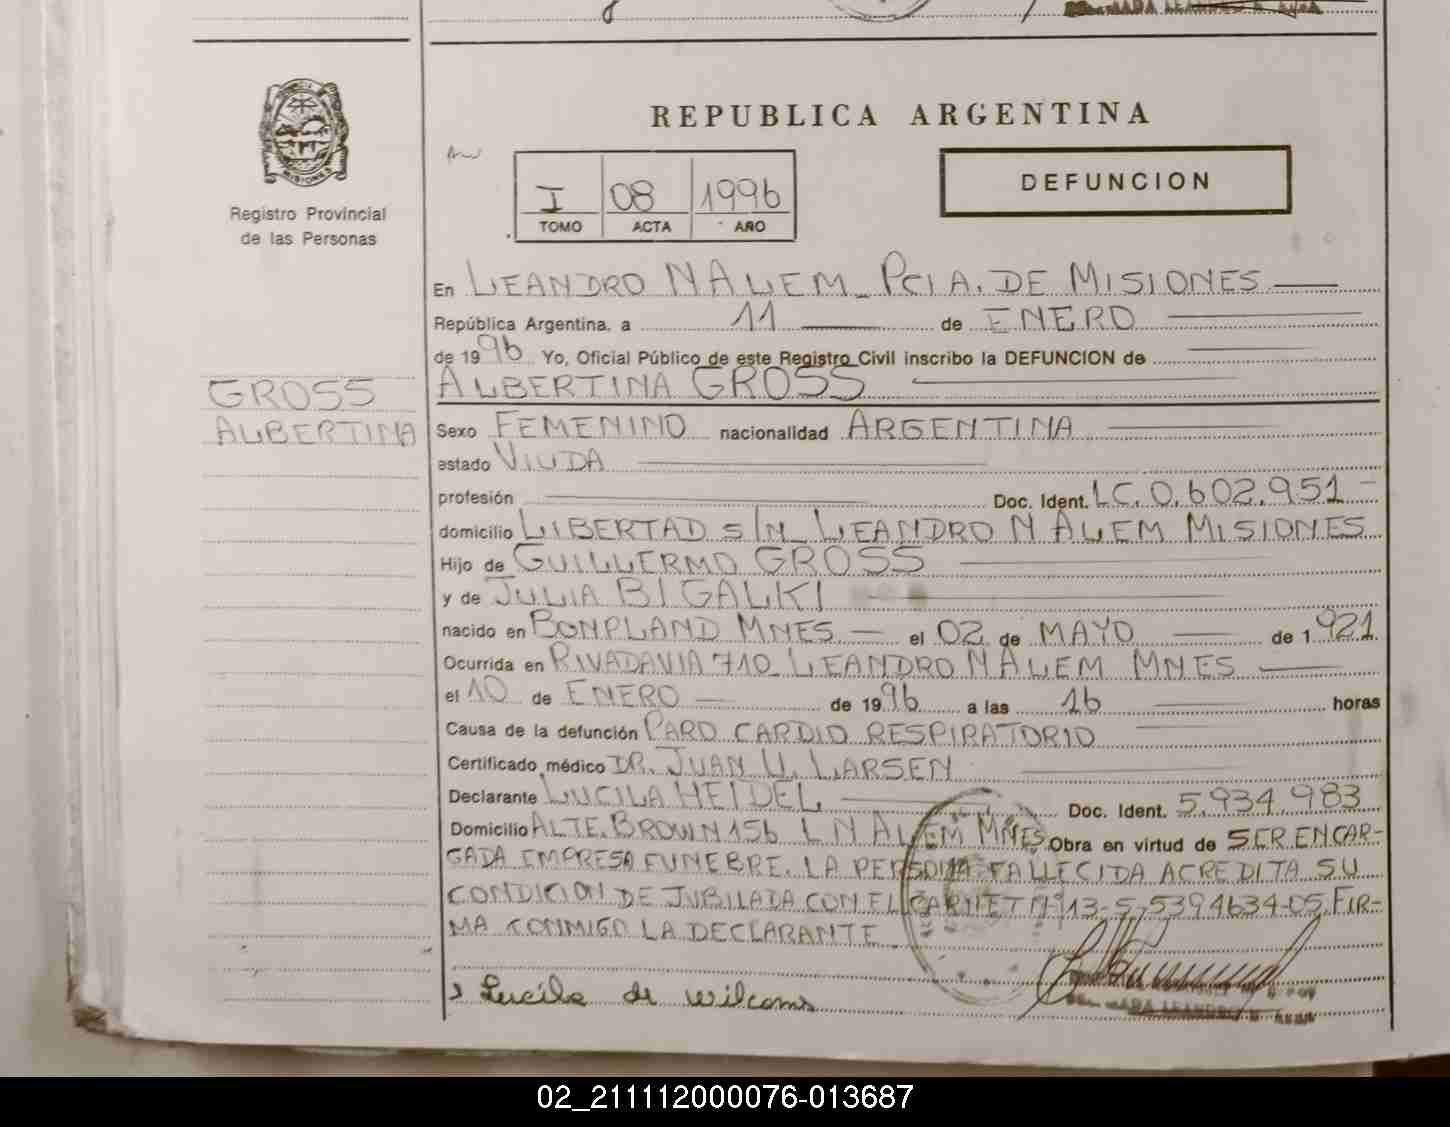 REPUBLICA ARGENTINA
MISIONES
Registro Provincial
de las Personas
I 08 1996
TOMO ACTA AÑO
DEFUNCION
En LEANDRO N ALEM - PCIA. DE MISIONES
República Argentina, a 11 de ENERO
de 1996 Yo, Oficial Público de este Registro Civil inscribo la DEFUNCION de
ALBERTINA GROSS
GROSS
ALBERTINA
Sexo FEMENINO nacionalidad ARGENTINA
estado VIUDA
profesión Doc. Ident. LC. 0.602.951
domicilio LIBERTAD S/N - LEANDRO N ALEM MISIONES
Hijo de GUILLERMO GROSS
y de JULIA BIGALKI
nacido en BONPLAND MNES - el 02 de MAYO de 1.921
Ocurrida en RIVADAVIA 710 - LEANDRO N ALEM MNES
el 10 de ENERO de 1996 a las 16 horas
Causa de la defunción PARO CARDIO RESPIRATORIO
Certificado médico DR. JUAN U. LARSEN
Declarante LUCILA HEIDEL Doc. Ident. 5.934.983
Domicilio ALTE. BROWN 156 L N ALEM MNES Obra en virtud de SER ENCAR-
GADA EMPRESA FUNEBRE. LA PERSONA FALLECIDA ACREDITA SU
CONDICION DE JUBILADA CON EL CARNET Nº 13-5-5394634-05. FIR-
MA CONMIGO LA DECLARANTE
Lucila de Wilcoms
02_211112000076-013687